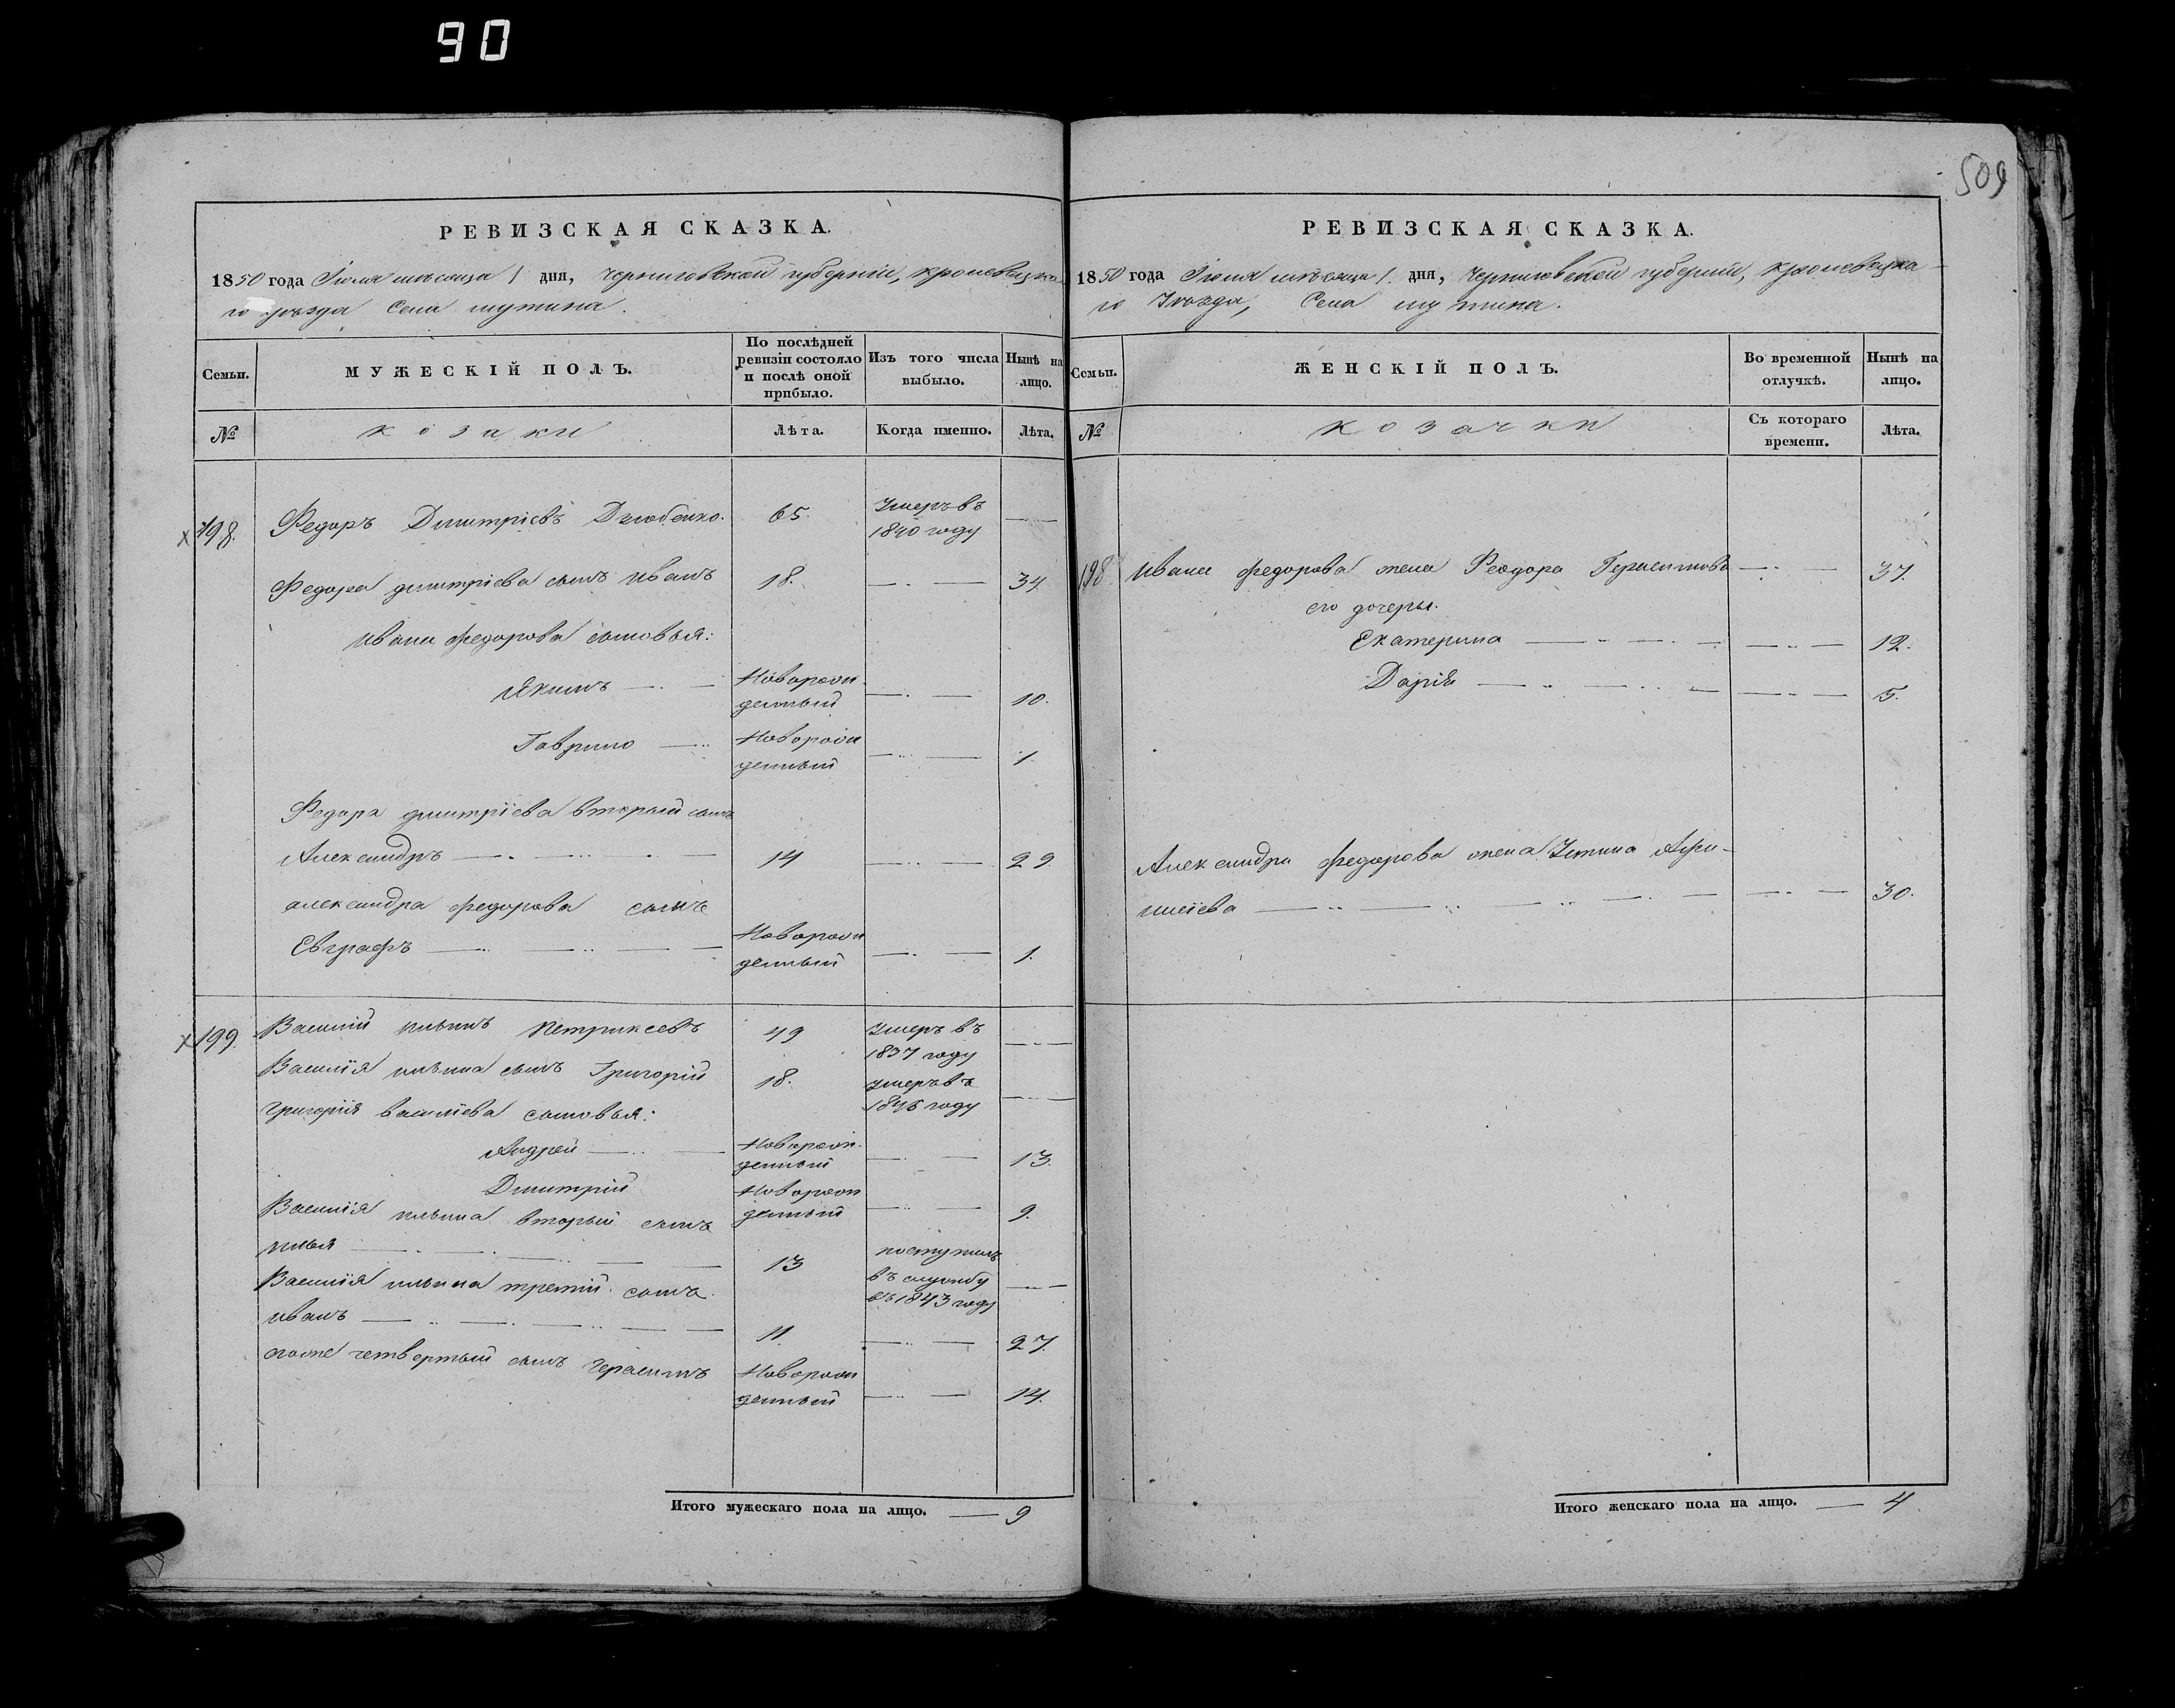 90
509
РЕВИЗСКАЯ СКАЗКА.
1850 года Іюля мѣсяца 1 дня, Черниговской губерніи, Кролевецка
го уѣзда Села Шутина.
Семьи.
МУЖЕСКІЙ ПОЛЪ.
По послѣдней ревизіи состояло и послѣ оной прибыло.
Изъ того числа выбыло.
Нынѣ на лицо.
№
козаки
Лѣта.
Когда именно.
Лѣта.
198. Федоръ Дмитріевъ Дзюбенко. 65. Умеръ въ 1840 году —
Федора дмитріева сынъ Иванъ 18. — 34.
Ивана федорова сыновья:
Якимъ — Новорожденный — 10.
Гаврило — Новорожденный — 1
Федора дмитріева вторый сынъ
Александръ — 14 — 29
александра федорова сынъ
Евграфъ — Новорожденный — 1.
199. Василій ильинъ Петриксевъ 49 Умеръ въ 1837 году —
Василія ильина сынъ Григорій 18. умеръ въ 1846 году —
Григорія василіева сыновья:
Андрей — Новорожденный — 13.
Дмитрій Новорожденный — 9.
Василія ильина вторый сынъ
илья — 13 поступилъ въ службу въ 1843 году —
Василія ильина третій сынъ
иванъ — 11. — 27
его же четвертый сынъ Герасимъ Новорожденный — 14.
Итого мужескаго пола на лицо. — 9
РЕВИЗСКАЯ СКАЗКА.
1850 года Іюля мѣсяца 1. дня, Черниговской губерніи, Кролевецка-
го Уѣзда, Села Шутина.
Семьи.
ЖЕНСКІЙ ПОЛЪ.
Во временной отлучкѣ.
Нынѣ на лицо.
№
козачки
Съ котораго времени.
Лѣта.
198 Ивана федорова жена Феодора Герасимова — 37.
его дочеры.
Екатерина — — 12.
Дарія — — 5.
Александра федорова жена Устина Афа-
насіева — — 30.
Итого женскаго пола на лицо. — 4